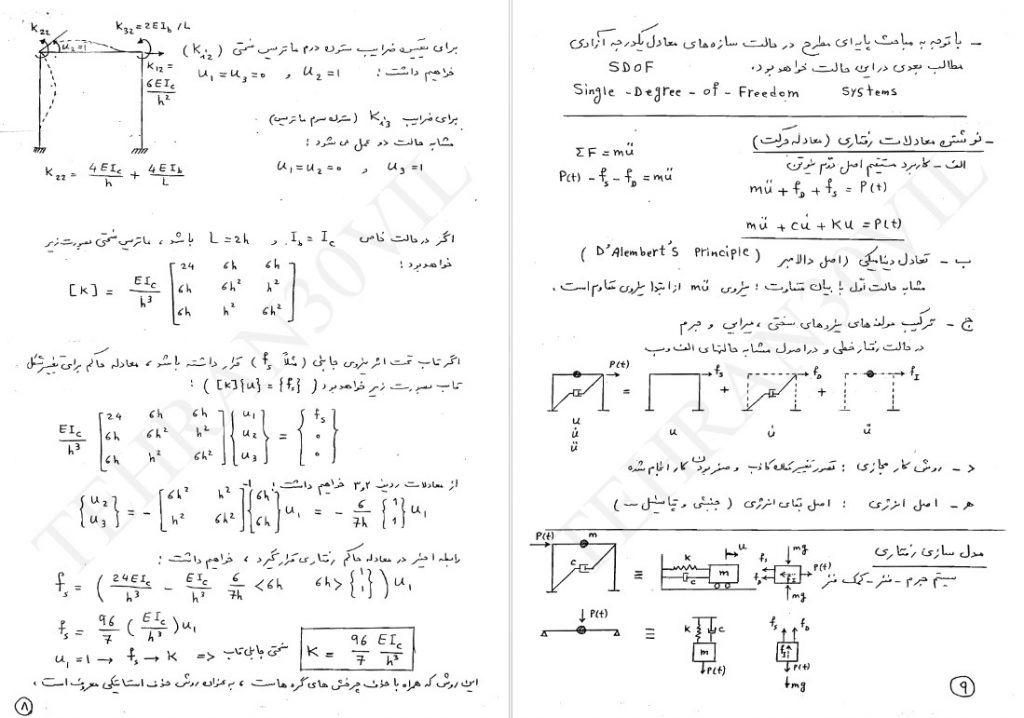 برای تعیین ضرایب ستون دوم ماتریس سختی (Ki2)
خواهیم داشت: u1 = u3 = 0 و u2 = 1
K22
u2=1
K32 = 2EIb / L
K12 = 6EIc / h²
K22 = 4EIc / h + 4EIb / L
برای ضرایب Ki3 (ستون سوم ماتریس)
مشابه حالت دو عمل می شود:
u1 = u2 = 0 و u3 = 1
اگر در حالت خاص L = 2h و Ib = Ic باشد، ماتریس سختی بصورت زیر
خواهد بود:
[K] = EIc / h³ [24 6h 6h
6h 6h² h²
6h h² 6h²]
اگر تاب تحت اثر نیروی جانبی (مثلاً fs) قرار داشته باشد، معادله حاکم برای تغییر شکل
تاب بصورت زیر خواهد بود ([K]{u} = {fs})
EIc / h³ [24 6h 6h
6h 6h² h²
6h h² 6h²] {u1 u2 u3} = {fs 0 0}
از معادلات ردیف 2 و 3 خواهیم داشت:
{u2 u3} = -[6h² h²
h² 6h²]⁻¹ {6h 6h} u1 = - 6/7h {1 1} u1
رابطه اخیر در معادله حاکم رفتاری قرار گیرد، خواهیم داشت:
fs = (24EIc / h³ - EIc / h³ 6/7h <6h 6h> {1 1}) u1
fs = 96/7 (EIc / h³) u1
u1 = 1 → fs → K => سختی جانبی تاب K = 96/7 EIc / h³
این روش که همراه با حذف چرخش های گره هاست، به عنوان روش حذف استاتیکی معروف است.
۸
- با توجه به مباحث پایه ای مطرح در حالت سازه های معادل یکدرجه آزادی
مطالب بعدی در این حالت خواهد بود. SDOF
Single - Degree - of - Freedom Systems
- نوشتن معادلات رفتاری (معادله حرکت)
ΣF = mü
الف - کاربرد مستقیم اصل دوم نیوتن
P(t) - fs - fD = mü
mü + fD + fs = P(t)
mü + cu̇ + Ku = P(t)
ب - تعادل دینامیکی (اصل دالامبر D'Alembert's Principle)
مشابه حالت اول با بیان متفاوت: نیروی mü از ابتدا نیروی مقاوم است.
ج - ترکیب مولفه های نیروهای سختی، میرایی و جرم
در حالت رفتار خطی و در اصول مشابه حالتهای الف و ب
P(t) = fs + fD + fI
u u̇ ü u u̇ ü
د - روش کار مجازی: تصور تغییر مکان کاذب و صفر بودن کار انجام شده
هـ - اصل انرژی: اصل بقای انرژی (جنبشی و پتانسیل ...)
مدل سازی رفتاری
سیستم جرم - فنر - کمک فنر
P(t) m c ≡ K c m u fs fD mg fI P(t) mg
P(t) ≡ K c m P(t) fs fD fI P(t) mg
۹
TEHRAN30VIL
TEHRAN30VIL